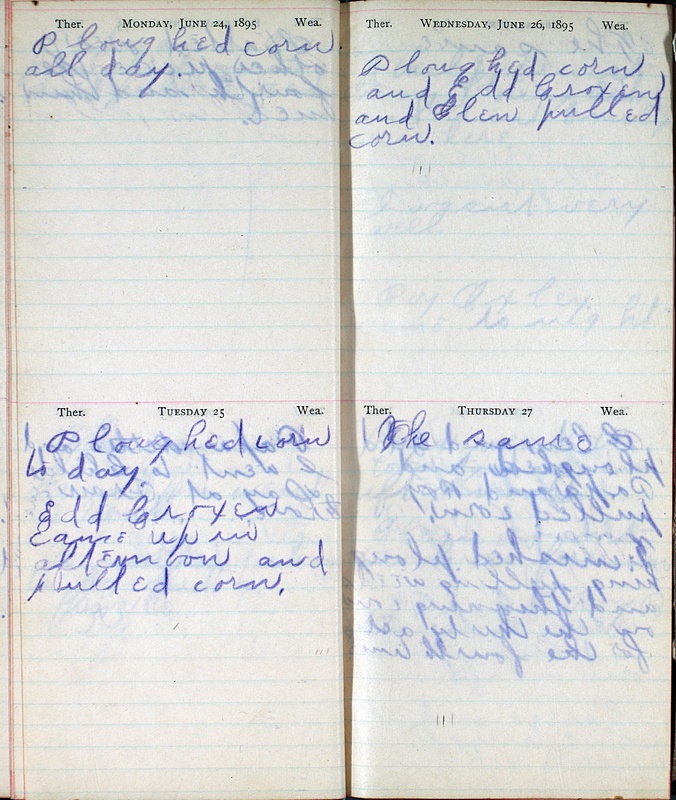 Ther. MONDAY, JUNE 24, 1895 Wea.
Ploughed corn
all day.
Ther. TUESDAY 25 Wea.
Ploughed corn
to day.
Edd Groxen
came up in
afternoon and
pulled corn.
Ther. WEDNESDAY, JUNE 26, 1895 Wea.
Ploughed corn
and Edd Groxen
and Elen pulled
corn.
Ther. THURSDAY 27 Wea.
The same